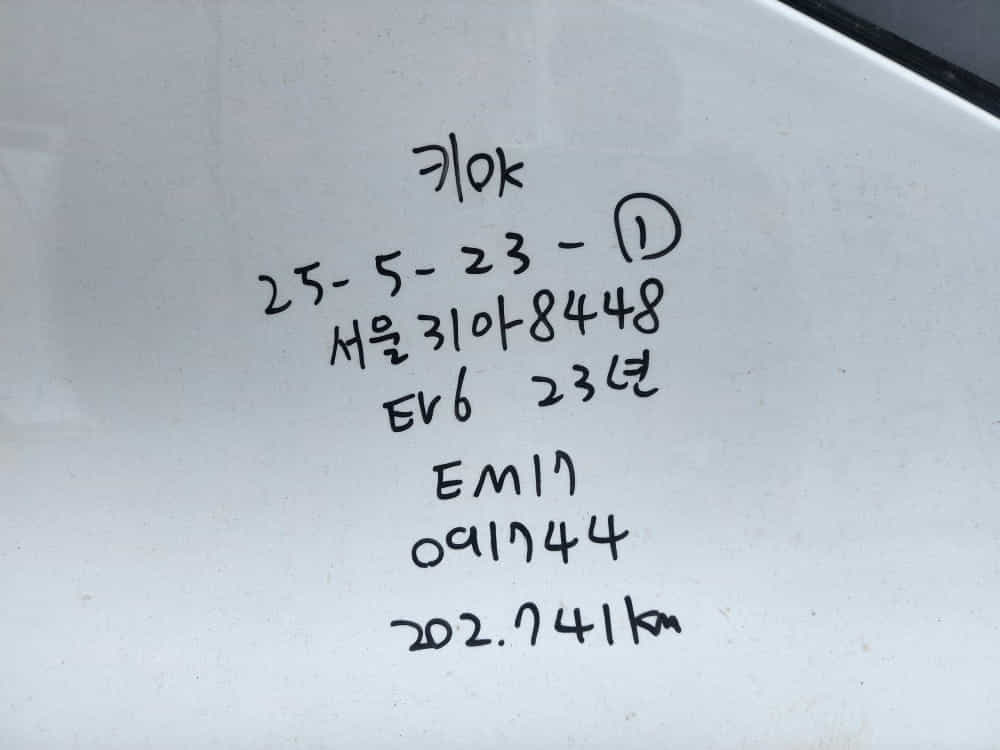 키OK
25-5-23-①
서울31아8448
EV6 23년
EM17
091744
202.741km